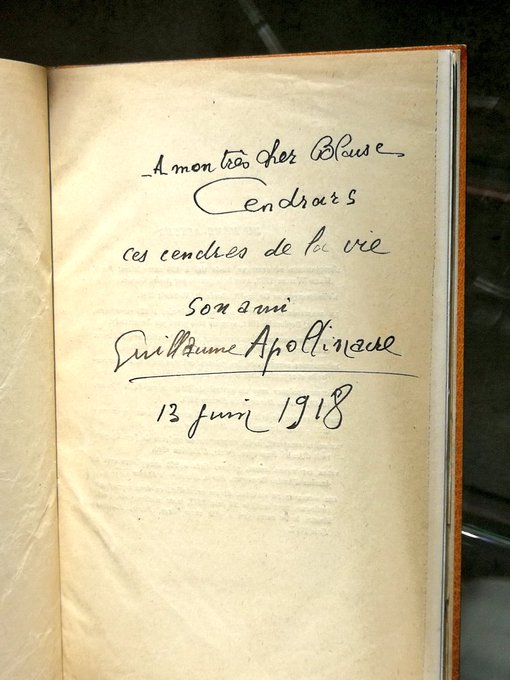 A mon très cher Blaise
Cendrars
ces cendres de la vie
son ami
Guillaume Apollinaire
13 juin 1918